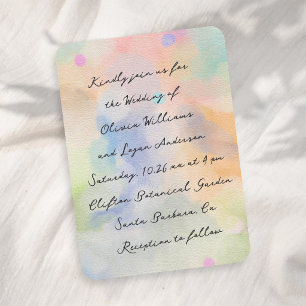 Kindly join us for
the Wedding of
Olivia Williams
and Logan Anderson
Saturday, 10.26 xx at 4 pm
Clifton Botanical Garden
Santa Barbara, Ca
Reception to follow